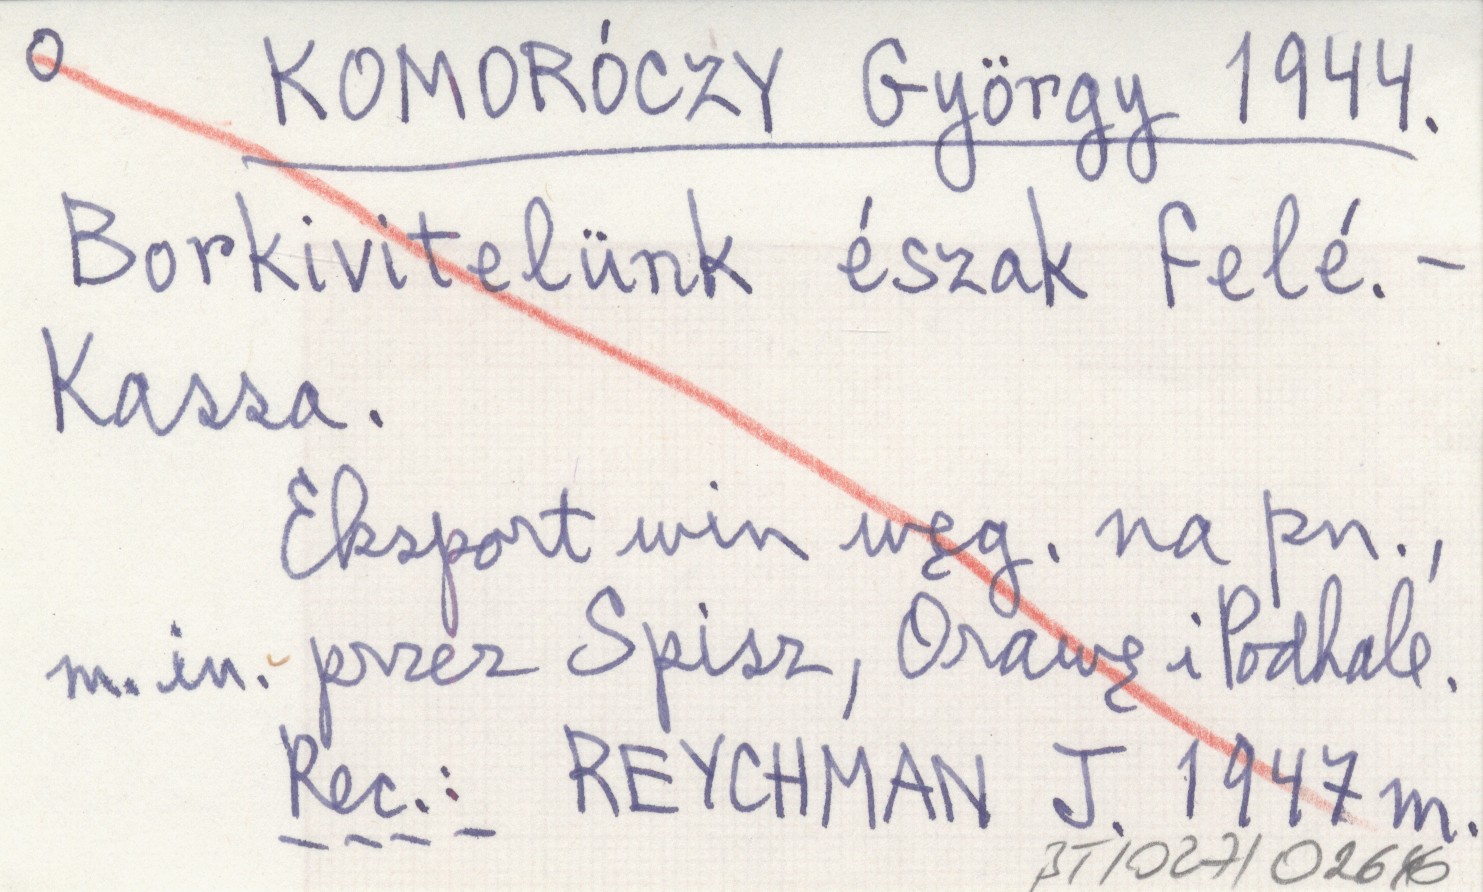 O KOMORÓCZY György 1944.
Borkivitelünk észak felé. -
Kassa.
Eksport win węg. na pn.,
m.in. przez Spisz, Orawę i Podhale.
Rec.: REYCHMAN J. 1947 m.